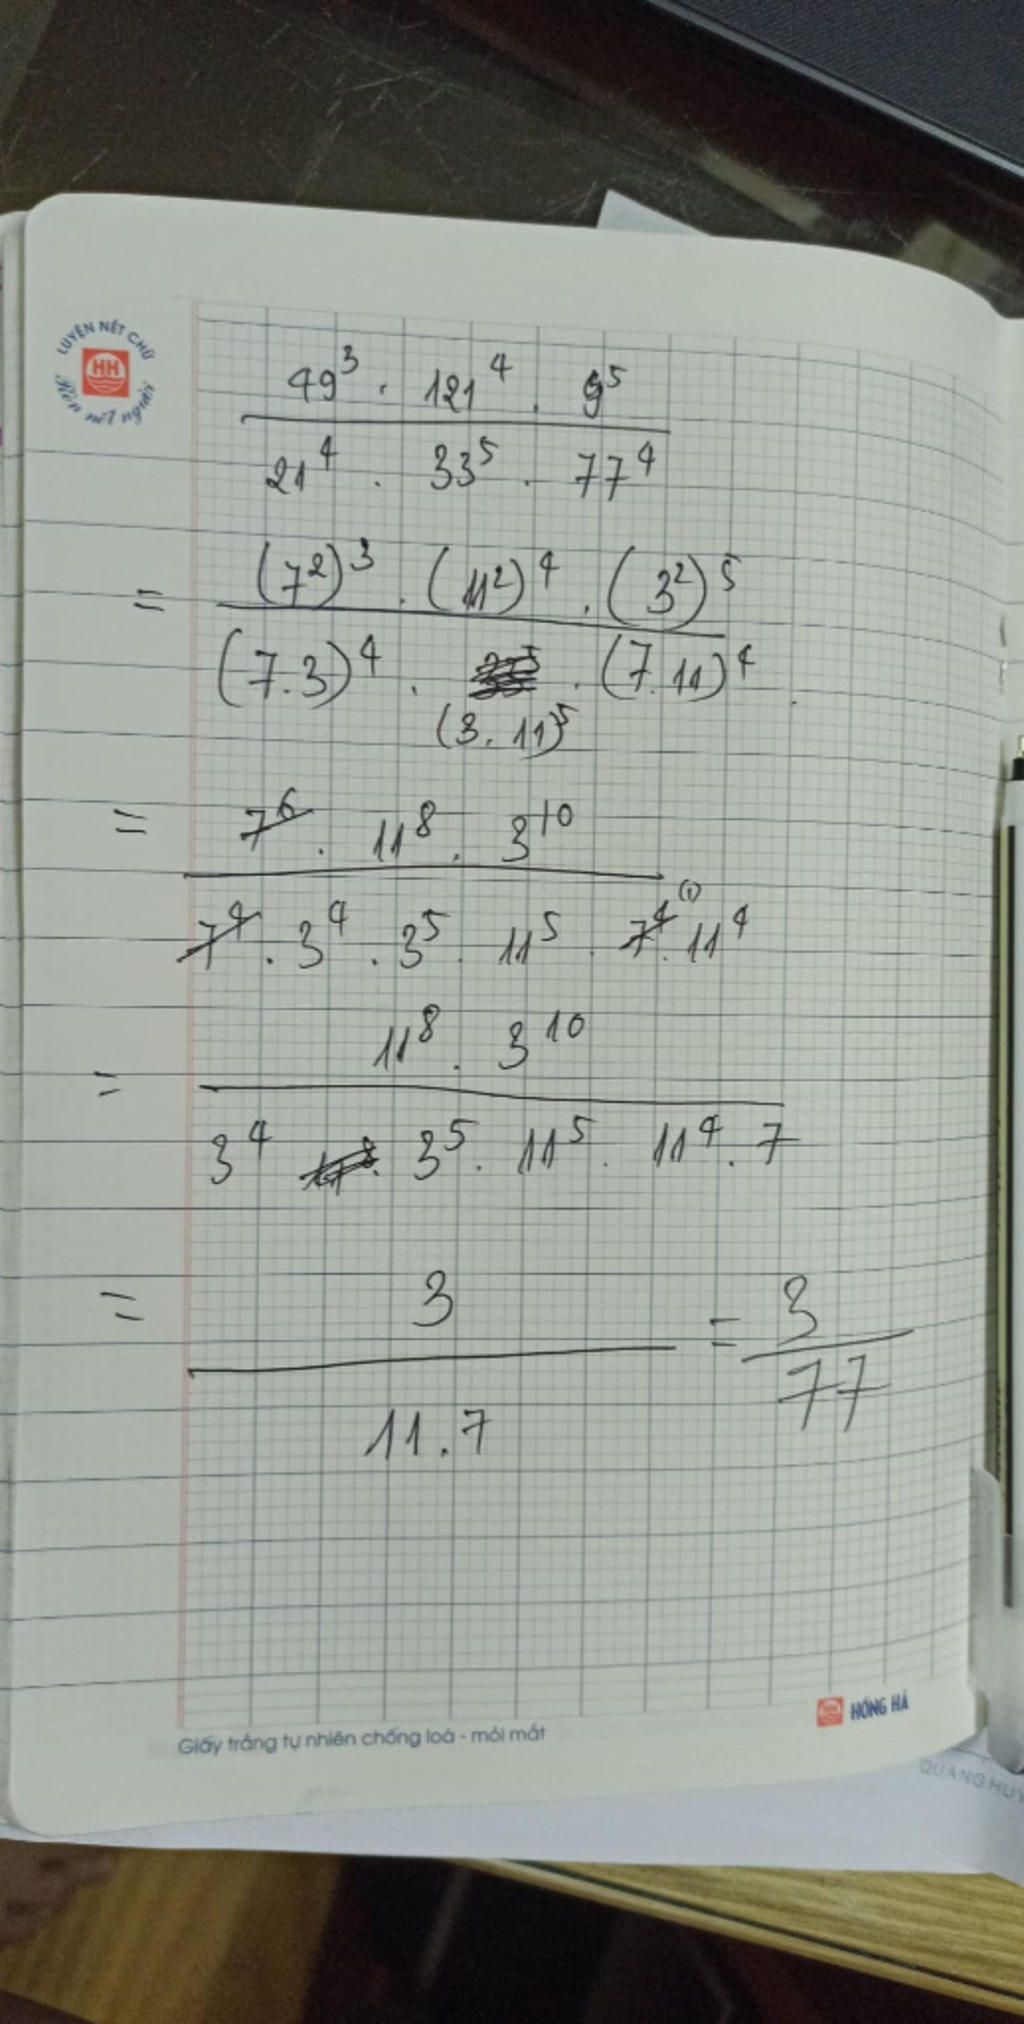 LUYỆN NÉT CHỮ
HH
Rèn nết người
49³ . 121⁴ . 9⁵
21⁴ . 33⁵ . 77⁴
= (7²)³ . (11²)⁴ . (3²)⁵
(7.3)⁴ . . (7.11)⁴
(3.11)⁵
= 7⁶ . 11⁸ . 3¹⁰
(1)
7⁴ . 3⁴ . 3⁵ . 11⁵ . 7⁴ . 11⁴
= 11⁸ . 3¹⁰
3⁴ 3⁵ . 11⁵ . 11⁴ . 7
= 3 = 3
11.7 77
HỒNG HÀ
Giấy trắng tự nhiên chống loá - mỏi mắt
QUANG HUY